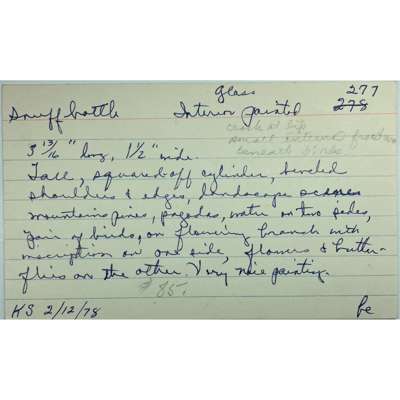 Glass 277
Snuff bottle Interior painted 278
crack at lip
small internal fracture
beneath birds
3 13/16" long, 1 1/2" wide.
Tall, squared off cylinder, beveled
shoulders & edges, landscape scenes
mountains pines, pagodas, water on two sides,
pair of birds, on flowering branch with
inscription on one side, flowers & butter-
flies on the other. Very nice painting.
$85.
KS 2/12/78 be